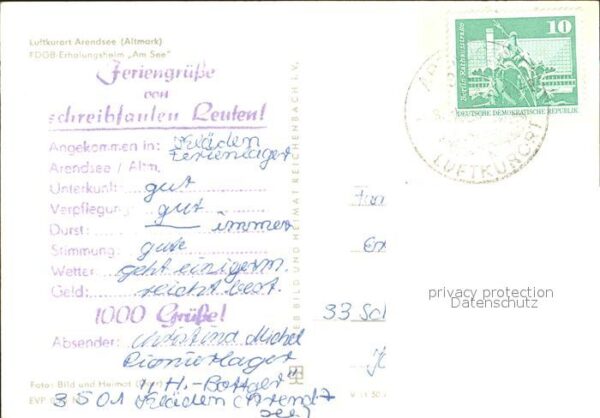 Luftkurort Arendsee (Altmark)
FDGB-Erholungsheim „Am See"
Feriengrüße
von
schreibfaulen Leuten!
Angekommen in: Kläden
Ferienlager
Arendsee / Altm.
Unterkunft: gut
Verpflegung: gut
Durst: immer
Stimmung: gute
Wetter: geht einigerm.
Geld: reicht
1000 Grüße!
Absender: Michel
Pionierlager
3501 Kläden (Arend-
see)
Foto: Bild und Heimat
EVP
VEB BILD UND HEIMAT REICHENBACH I. V.
10
DEUTSCHE DEMOKRATISCHE REPUBLIK
LUFTKURORT
Fam
33 Sch
privacy protection
Datenschutz